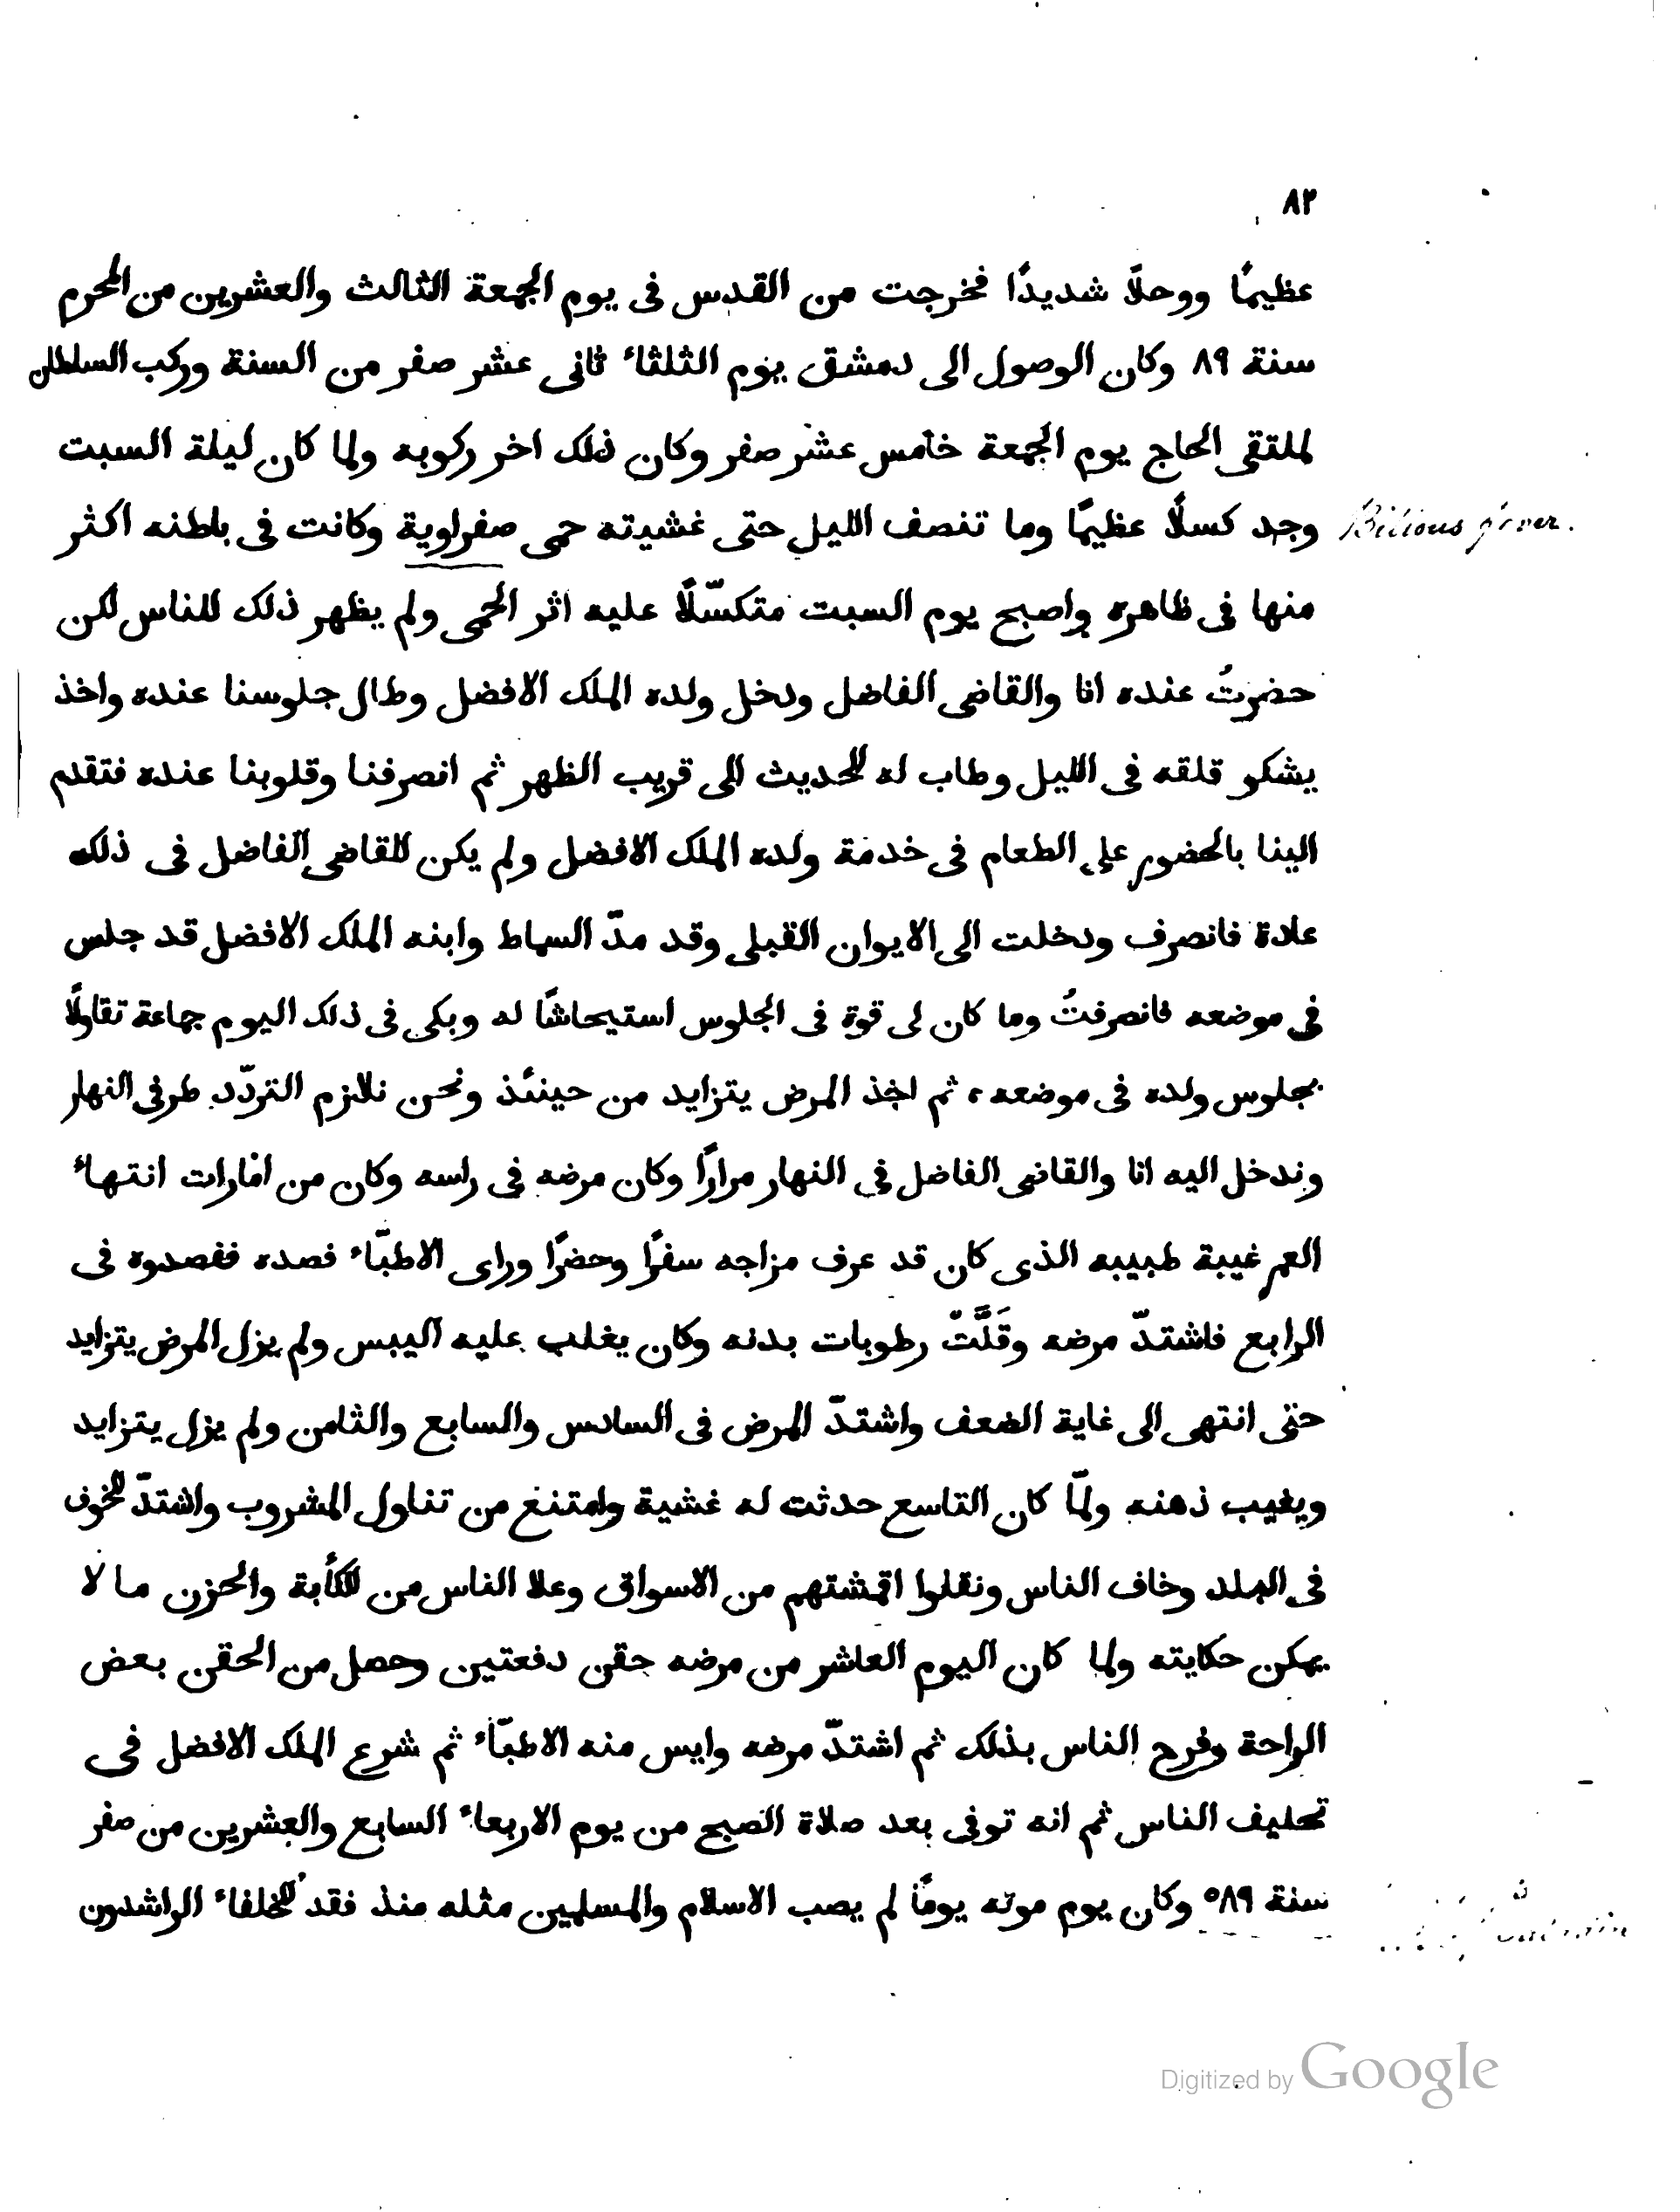 ٨٢
عظيمًا ووحلًا شديدًا فخرجت من القدس فى يوم الجمعة الثالث والعشرين من المحرم
سنة ٨٩ وكان الوصول الى دمشق يوم الثلثاء ثانى عشر صفر من السنة وركب السلطان
لملتقى الحاج يوم الجمعة خامس عشر صفر وكان ذلك اخر ركوبه ولما كان ليلة السبت
وجد كسلًا عظيمًا وما تنصف الليل حتى غشيته حمى صفراوية وكانت فى باطنه اكثر
Bilious fever.
منها فى ظاهره واصبح يوم السبت متكسّلًا عليه اثر الحمى ولم يظهر ذلك للناس لكن
حضرتُ عنده انا والقاضى الفاضل ودخل ولده الملك الافضل وطال جلوسنا عنده واخذ
يشكو قلقه فى الليل وطاب له الحديث الى قريب الظهر ثم انصرفنا وقلوبنا عنده فتقدم
الينا بالحضور على الطعام فى خدمة ولده الملك الافضل ولم يكن للقاضى الفاضل فى ذلك
عادة فانصرف ودخلت الى الايوان القبلى وقد مدّ السماط وابنه الملك الافضل قد جلس
فى موضعه فانصرفتُ وما كان لى قوة فى الجلوس استيحاشًا له وبكى فى ذلك اليوم جماعة تفاولًا
بجلوس ولده فى موضعه، ثم اخذ المرض يتزايد من حينئذ ونحن نلازم التردّد طرفى النهار
وندخل اليه انا والقاضى الفاضل فى النهار مرارًا وكان مرضه فى راسه وكان من امارات انتهاء
العمر غيبة طبيبه الذى كان قد عرف مزاجه سفرًا وحضرًا وراى الاطبّاء فصده ففصدوه فى
الرابع فاشتدّ مرضه وقَلَّتْ رطوبات بدنه وكان يغلب عليه اليبس ولم يزل المرض يتزايد
حتى انتهى الى غاية الضعف واشتدّ المرض فى السادس والسابع والثامن ولم يزل يتزايد
ويغيب ذهنه ولمّا كان التاسع حدثت له غشية وامتنع من تناول المشروب واشتدّ الخوف
فى البلد وخاف الناس ونقلوا اقمشتهم من الاسواق وعلا الناس من الكأبة والحزن ما لا
يمكن حكايته ولما كان اليوم العاشر من مرضه حقن دفعتين وحصل من الحقن بعض
الراحة وفرح الناس بذلك ثم اشتدّ مرضه وايس منه الاطبّاء ثم شرع الملك الافضل فى
تحليف الناس ثم انه توفى بعد صلاة الصبح من يوم الاربعاء السابع والعشرين من صفر
سنة ٥٨٩ وكان يوم موته يومًا لم يصب الاسلام والمسلمين مثله منذ فقد الخلفاء الراشدون
Digitized by Google